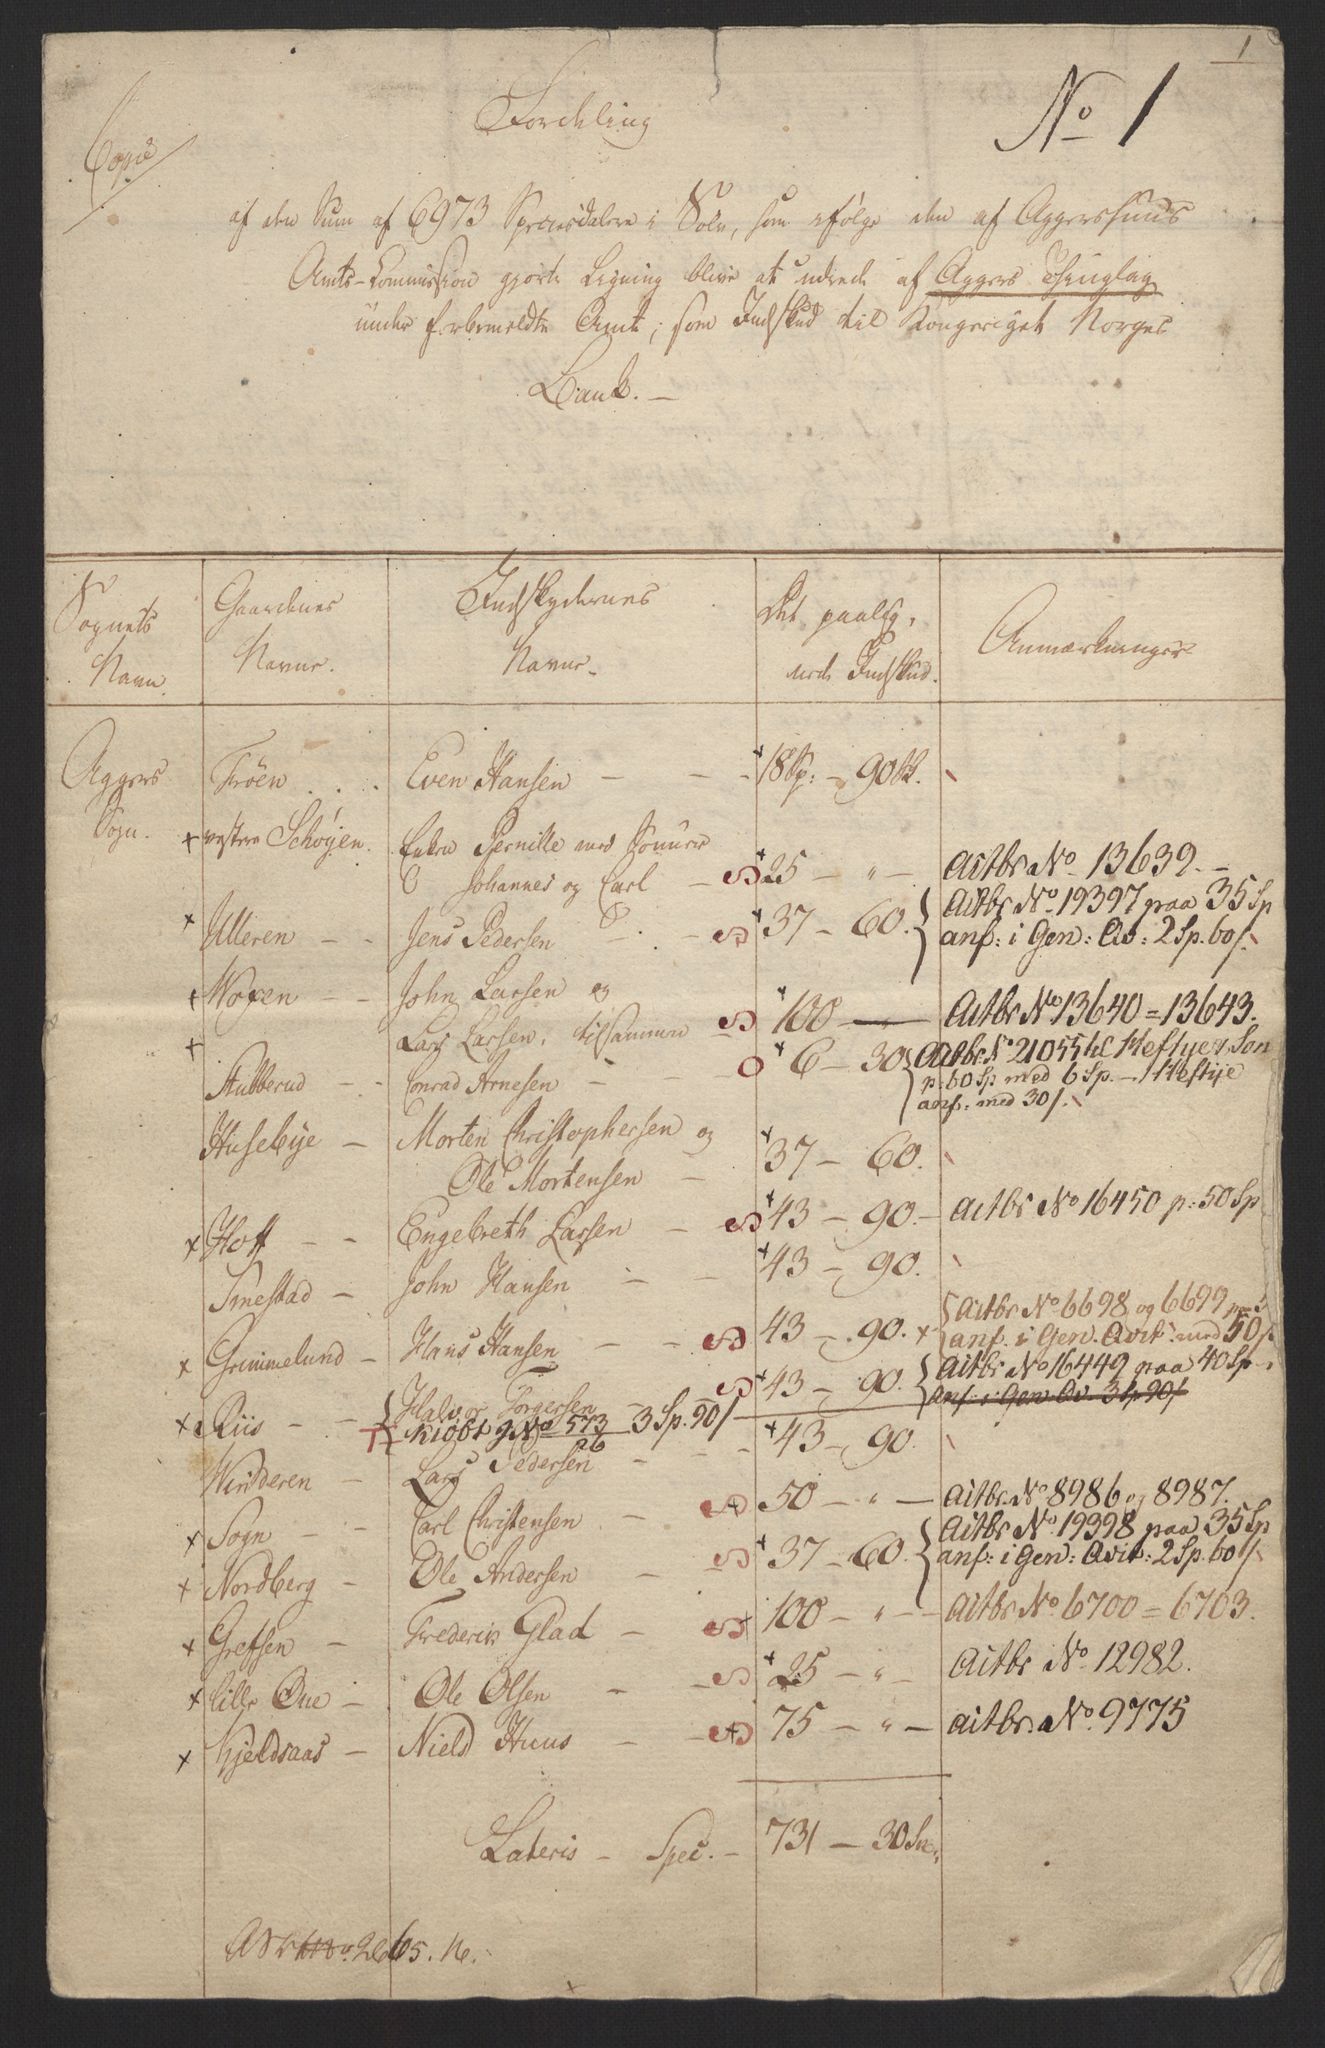 1
No 1
Copie
Fordeling
af den Sum af 6973 Speciesdalere i Sølv, som ifølge den af Aggershuus
Amts-Commission gjorte Ligning bliver at udrede af Aggers Thinglag
under forbemeldte Amt, som Indskud til Kongeriget Norges
Bank. —
Sognets Navn. | Gaardenes Navne. | Indskydernes Navne. | Det paalig- nede Indskud. | Anmærkninger
Aggers Sogn. | Frøen . . . | Even Hansen — — | 18 Sp: — 90 ß.
vestre Schøyen. | Enken Pernille med Sønner
Johannes og Carl — | 25 — " — | Actbr No 13639. —
Ulleren — - | Jens Pedersen — - | 37 — 60. | Actbr No 19397 paa 35 Sp
anf: i Gen: Qv: 2 Sp. 60 ß.
Woxen — - | John Larsen og
Lars Larsen, tilsammen | 100 — | Actbr No 13640 = 13643.
Stubberud — - | Conrad Arnesen — - | 6 — 30 | Actbr. No 21055 til Heftye & Søn
p. 60 Sp med 6 Sp. — Heftye
anf: med 30 ß.
Husebye — | Morten Christophersen og
Ole Mortensen — | 37 — 60.
Hoff — - | Engebreth Larsen — | 43 — 90. — | Actbr No 16450 p: 50 Sp
Smestad — | John Hansen — — | 43 — 90.
Grimmelund — | Hans Hansen — - | 43 — 90. | Actbr No 6698 og 6699
anf. i Gen. Qvit: med 50 ß.
Riis — - | Halvor Torgersen — | 43 — 90. | Actbr No 16449 paa 40 Sp
anf: i Gen Qv. 3 Sp 90 ß
Kiøbt g No 573/26 3 Sp. 90 ß
Winderen — | Lars Pedersen — - - | 43 — 90.
Sogn — - | Carl Christensen — | 50 — " — | Actbr. No 8986 og 8987.
Nordberg — | Ole Andersen — | 37 — 60. | Actbr No 19398 paa 35 Sp
anf: i Gen: Qvit: 2 Sp. 60 ß.
Grefsen — | Frederik Glad — | 100 — " — | Actbr No 6700 = 6703.
Lille Øue — | Ole Olsen — | 25 — " | Actbr No. 12982.
Kjeldsaas — | Nield Huus — | 75 — " — | Actbr. No. 9775
Lateris — Spec. — 731 — 30 ß